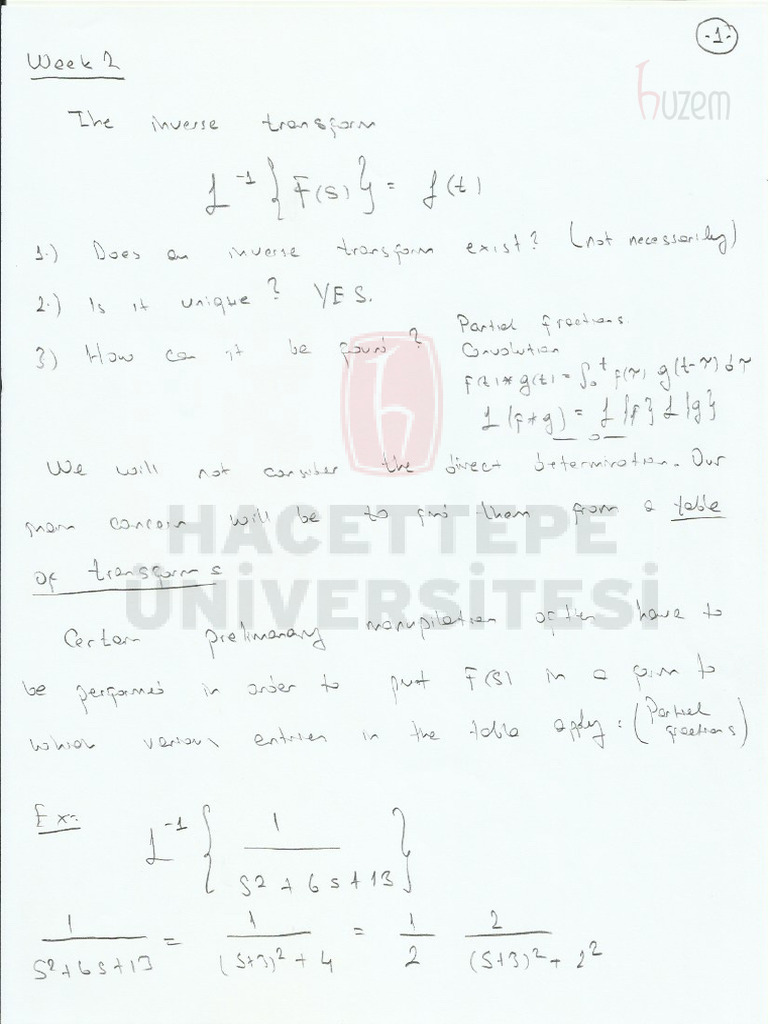 -1-
Week 2
huzem
The inverse transform
L⁻¹{F(s)} = f(t)
1.) Does an inverse transform exist? (not necessarily)
2.) Is it unique? YES.
3) How can it be found?
Partial fractions.
Convolution
f(t)*g(t) = ∫₀ᵗ f(τ) g(t-τ) dτ
L{f*g} = L{f} L{g}
We will not consider the direct determination. Our
main concern will be to find them from a table
of transforms
HACETTEPE
ÜNİVERSİTESİ
Certain preliminary manupilation often have to
be performed in order to put F(s) in a form to
which various entries in the table apply: (Partial
fractions)
Ex:
L⁻¹{1/(s²+6s+13)}
1/(s²+6s+13) = 1/((s+3)²+4) = 1/2 2/((s+3)²+2²)